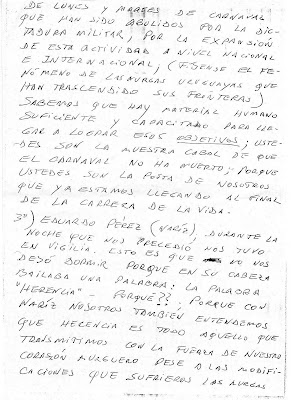 DE LUNES Y MARTES DE CARNAVAL
QUE HAN SIDO ABOLIDOS POR LA DIC-
TADURA MILITAR; POR LA EXPANSIÓN
DE ESTA ACTIVIDAD A NIVEL NACIONAL
E INTERNACIONAL, (FIJENSE EL FE-
NÓMENO DE LAS MURGAS URUGUAYAS QUE
HAN TRASLENDIDO SUS FRONTERAS)
SABEMOS QUE HAY MATERIAL HUMANO
SUFICIENTE Y CAPACITADO PARA LLE-
GAR A LOGRAR ESOS OBJETIVOS; USTE-
DES SON LA MUESTRA CABAL DE QUE
EL CARNAVAL NO HA MUERTO; PORQUE
USTEDES SON LA POSTA DE NOSOTROS
QUE YA ESTAMOS LLEGANDO AL FINAL
DE LA CARRERA DE LA VIDA.
3º) EDUARDO PÉREZ (NARÍZ), DURANTE LA
NOCHE QUE NOS PRECEDIÓ NOS TUVO
EN VIGILIA. ESTO ES QUE NO NOS
DEJÓ DORMIR PORQUE EN SU CABEZA
BAILABA UNA PALABRA: LA PALABRA
"HERENCIA" - PORQUÉ??; PORQUE CON
NARÍZ NOSOTROS TAMBIÉN ENTENDEMOS
QUE HERENCIA ES TODO AQUELLO QUE
TRANSMITIMOS CON LA FUERZA DE NUESTRO
CORAZÓN MURGUERO PESE A LAS MODIFI-
CACIONES QUE SUFRIERON LAS MURGAS